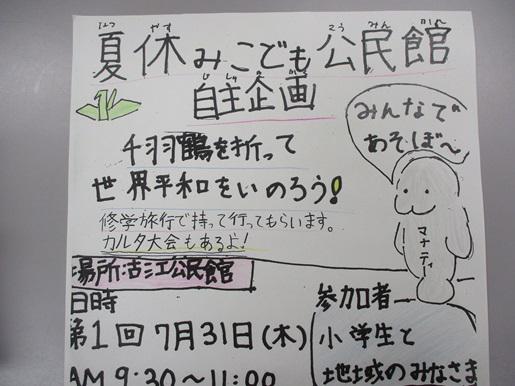 夏休みこども公民館
なつ やす こうみんかん
自主企画
じしゅ
みんなで
あそぼ～
千羽鶴を折って
世界平和をいのろう!
修学旅行で持って行ってもらいます。
カルタ大会もあるよ!
マナティ
場所:古江公民館
日時
第1回 7月31日(木)
AM 9:30～11:00
参加者
小学生と
地域のみなさま